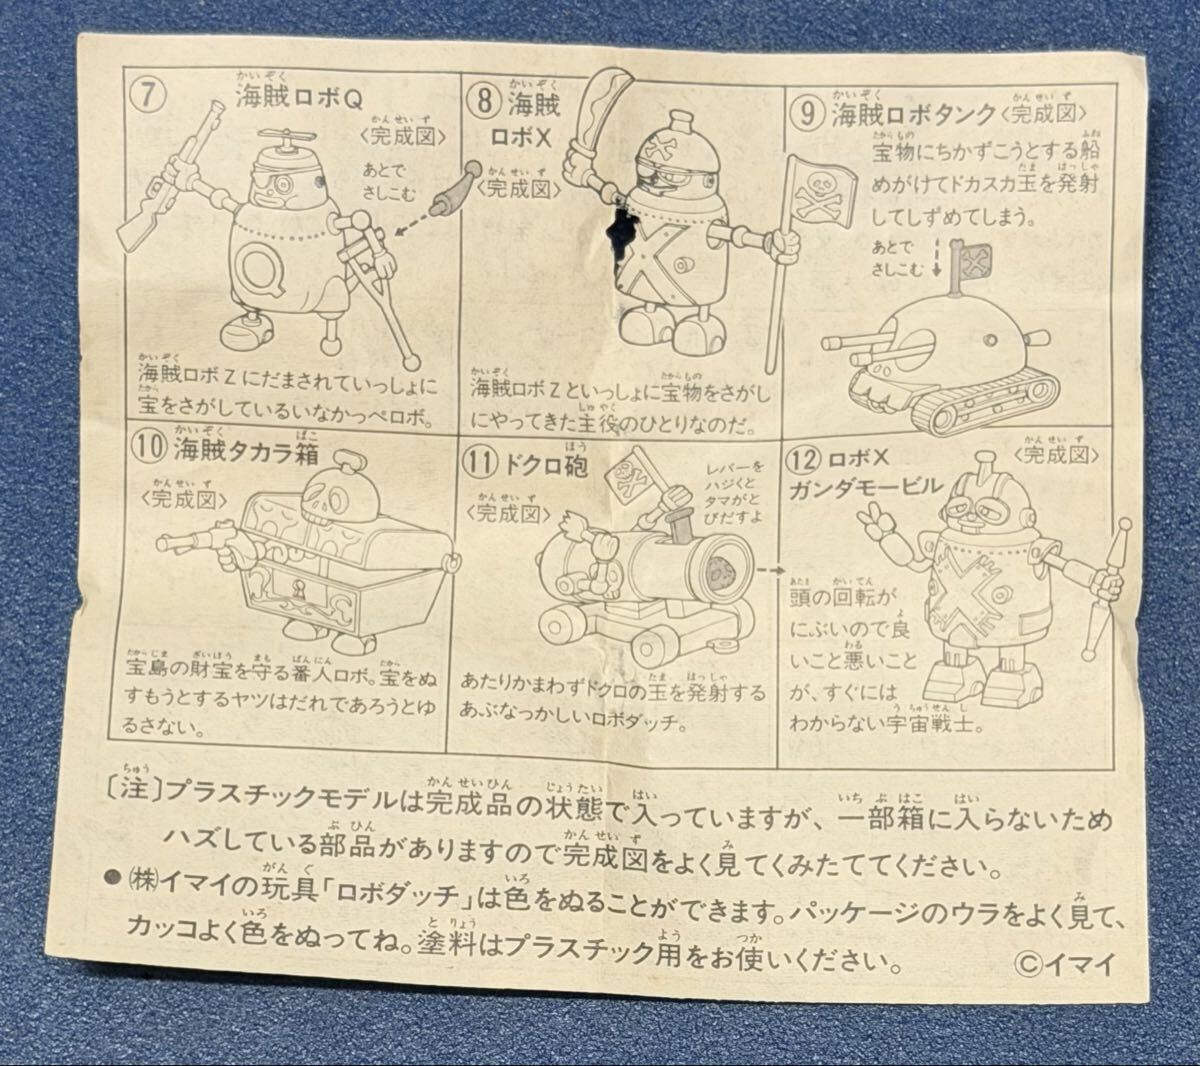 ⑦ 海賊ロボQ
〈完成図〉
あとで
さしこむ
海賊ロボZにだまされていっしょに
宝をさがしているいなかっぺロボ。
⑧ 海賊
ロボX
〈完成図〉
海賊ロボZといっしょに宝物をさがし
にやってきた主役のひとりなのだ。
⑨ 海賊ロボタンク〈完成図〉
宝物にちかずこうとする船
めがけてドカスカ玉を発射
してしずめてしまう。
あとで
さしこむ
⑩ 海賊タカラ箱
〈完成図〉
宝島の財宝を守る番人ロボ。宝をぬ
すもうとするヤツはだれであろうとゆ
るさない。
⑪ ドクロ砲
〈完成図〉
レバーを
ハジくと
タマがと
びだすよ
あたりかまわずドクロの玉を発射する
あぶなっかしいロボダッチ。
⑫ ロボX
ガンダモービル
〈完成図〉
頭の回転が
にぶいので良
いこと悪いこと
が、すぐには
わからない宇宙戦士。
〔注〕プラスチックモデルは完成品の状態で入っていますが、一部箱に入らないため
ハズしている部品がありますので完成図をよく見てくみたててください。
●㈱イマイの玩具「ロボダッチ」は色をぬることができます。パッケージのウラをよく見て、
カッコよく色をぬってね。塗料はプラスチック用をお使いください。
©イマイ